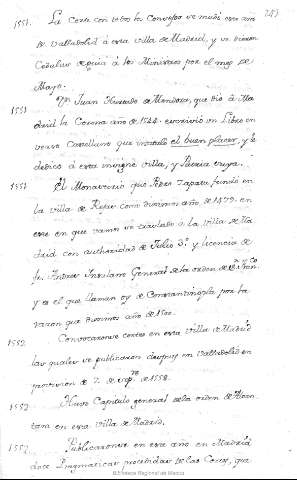 243
1551. La Corte con todos los Consejos se mudó este año
de Valladolid á esta villa de Madrid, y se dieron
Cedulas de guia á los Ministros por el mes de
Mayo.
1551. Dn Juan Hurtado de Mendoza, que dió á Ma
drid la Corona año de 1544. escrivió un Libro en
verso Castellano que intituló el buen placer, y le
dedicó á esta insigne villa, y Patria suya.
1551. El Monasterio que Pedro Zapata fundó en
la villa de Rejas como diximos año de 1479. en
este en que vamos se traslado a la villa de Ma
drid con authoridad de Julio 3º y licencia de
fr. Andres Insulano General de la orden de Sn Franco
y es el que llaman oy de Constantinopla por la
razon que diximos año de
1552. Convocaronse cortes en esta villa de Madrid
las quales se publicaron despues en Valladolid en
provision de 2. de de 1558.
1552. Huvo Capitulo general de la orden de Alcan
tara en esta villa de Madrid.
1552. Publicaronse en este año en Madrid
doce Pragmaticas procedidas de las Cortes, que
Biblioteca Regional de Madrid